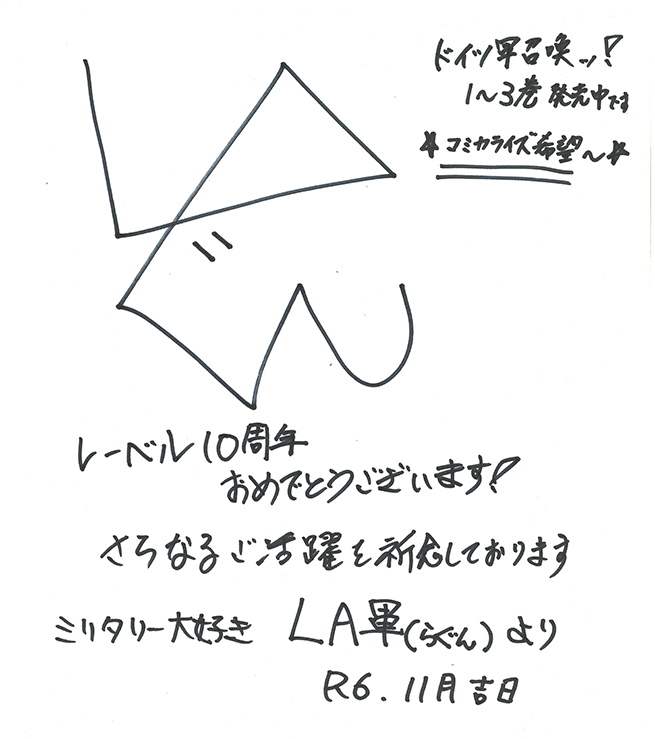 ドイツ軍召喚ッ!
1〜3巻 発売中です
*コミカライズ希望〜*
レーベル10周年
おめでとうございます!
さらなるご活躍を祈念しております
ミリタリー大好き LA軍(らぐん)より
R6.11月吉日